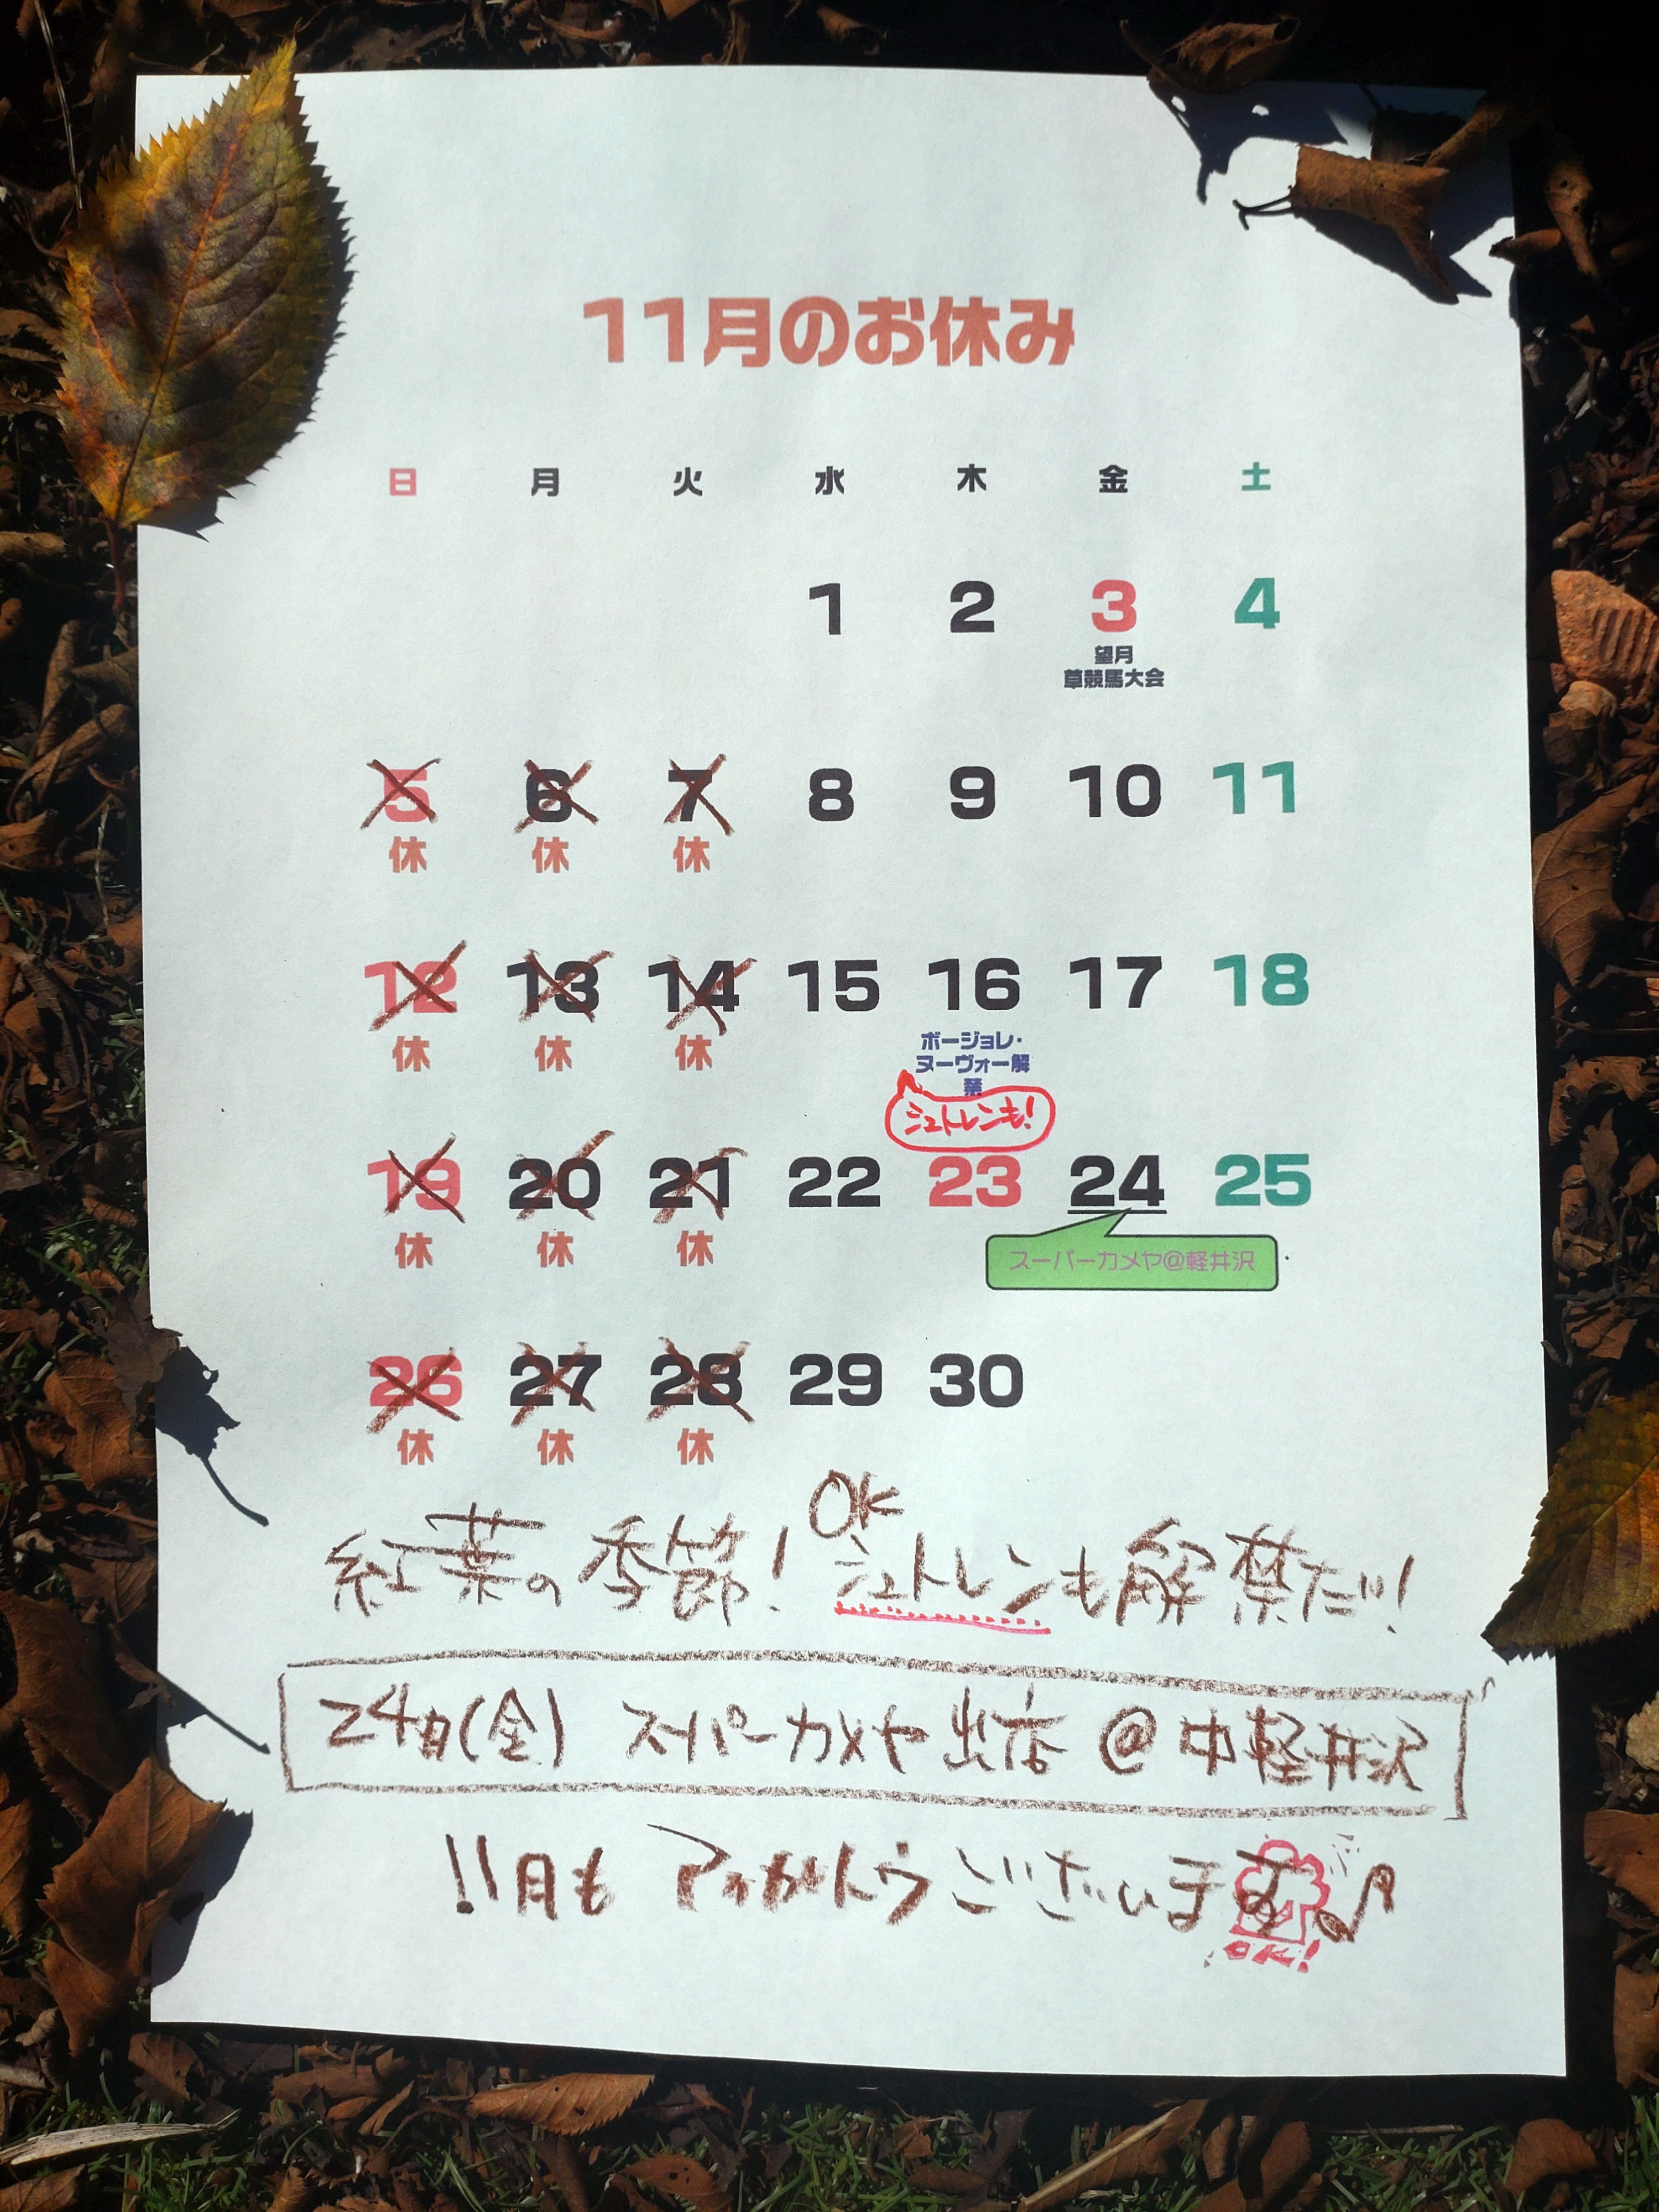 11月のお休み
日 月 火 水 木 金 土
1 2 3 4
望月
草競馬大会
5 6 7 8 9 10 11
休 休 休
12 13 14 15 16 17 18
休 休 休
ボージョレ・
ヌーヴォー解
禁
シュトレンも!
19 20 21 22 23 24 25
休 休 休
スーパーカメヤ@軽井沢
26 27 28 29 30
休 休 休
OK
紅葉の季節! シュトレンも解禁だッ!
24日(金) スーパーカメヤ出店@中軽井沢
11月も アリガトウございます♪
OK!